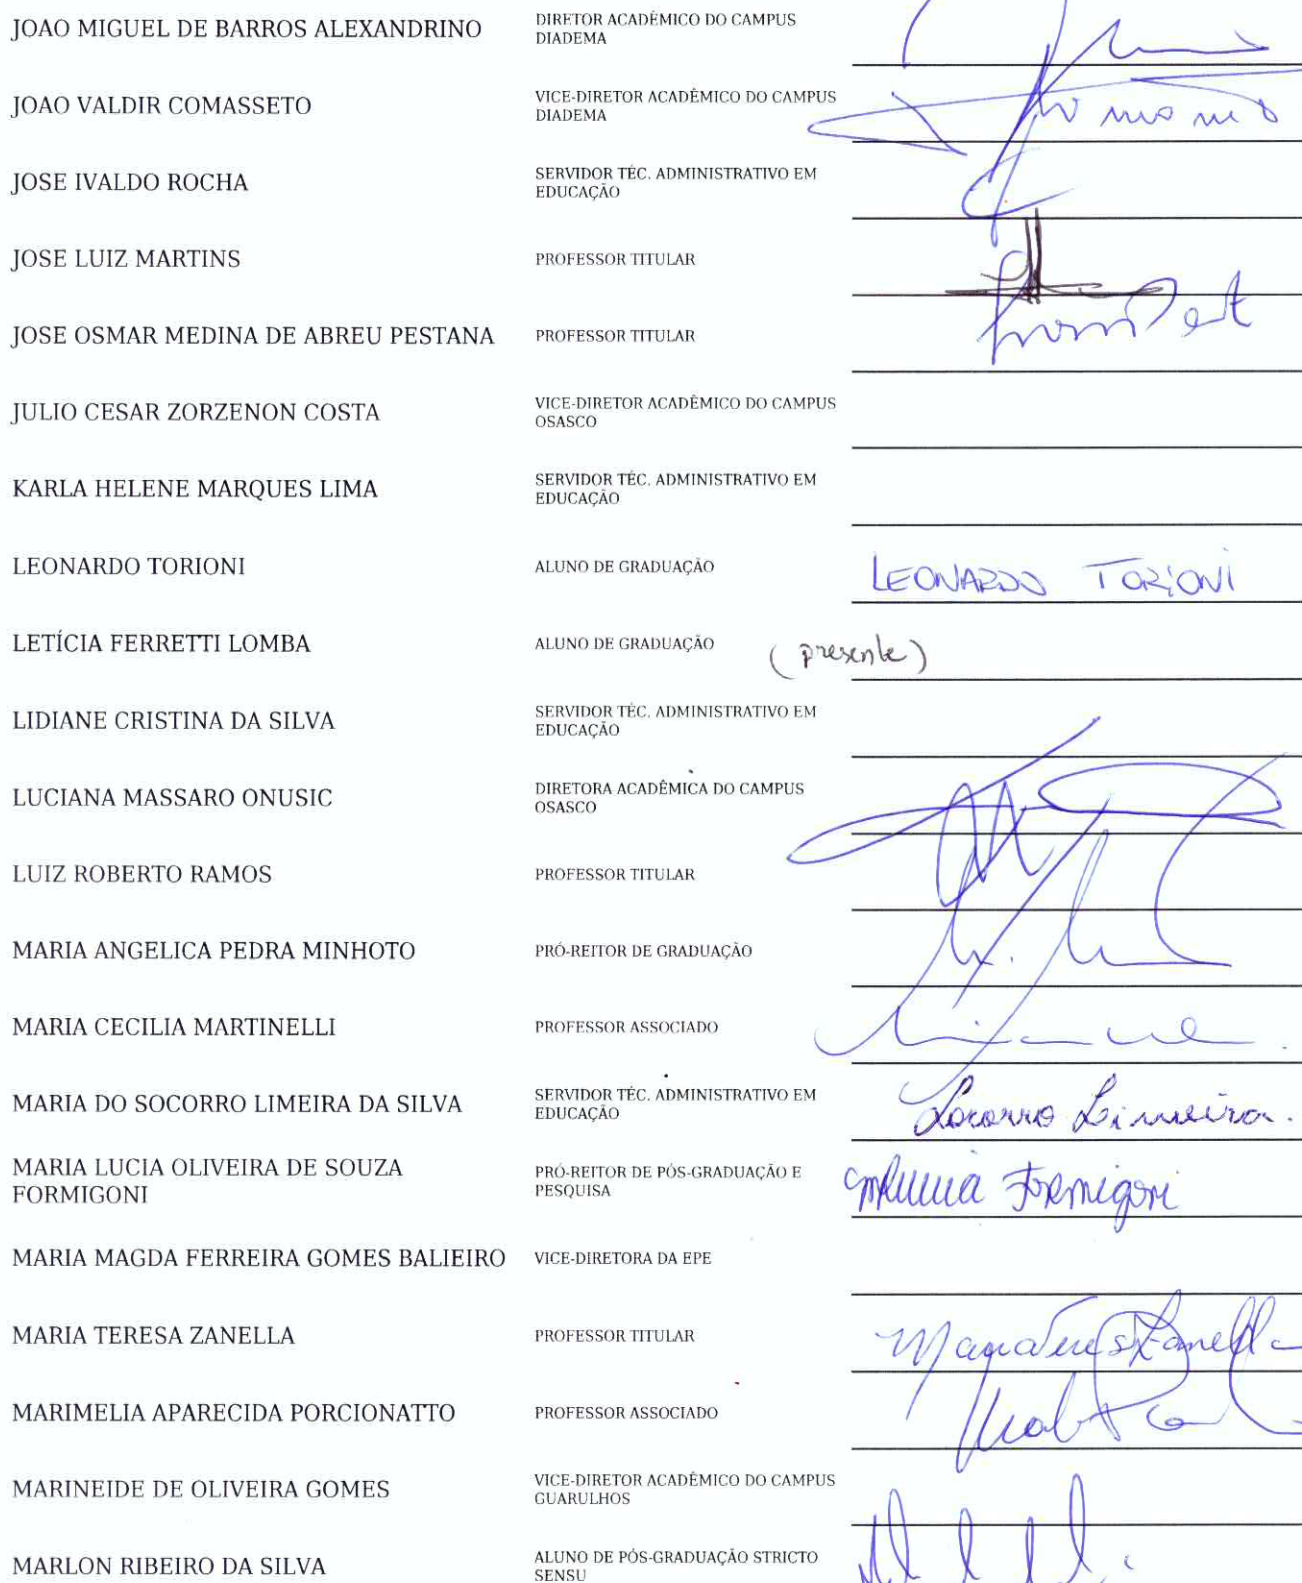 JOAO MIGUEL DE BARROS ALEXANDRINO
DIRETOR ACADÊMICO DO CAMPUS
DIADEMA
JOAO VALDIR COMASSETO
VICE-DIRETOR ACADÊMICO DO CAMPUS
DIADEMA
JOSE IVALDO ROCHA
SERVIDOR TÉC. ADMINISTRATIVO EM
EDUCAÇÃO
JOSE LUIZ MARTINS
PROFESSOR TITULAR
JOSE OSMAR MEDINA DE ABREU PESTANA
PROFESSOR TITULAR
JULIO CESAR ZORZENON COSTA
VICE-DIRETOR ACADÊMICO DO CAMPUS
OSASCO
KARLA HELENE MARQUES LIMA
SERVIDOR TÉC. ADMINISTRATIVO EM
EDUCAÇÃO
LEONARDO TORIONI
ALUNO DE GRADUAÇÃO
LEONARDO TORIONI
LETÍCIA FERRETTI LOMBA
ALUNO DE GRADUAÇÃO
(presente)
LIDIANE CRISTINA DA SILVA
SERVIDOR TÉC. ADMINISTRATIVO EM
EDUCAÇÃO
LUCIANA MASSARO ONUSIC
DIRETORA ACADÊMICA DO CAMPUS
OSASCO
LUIZ ROBERTO RAMOS
PROFESSOR TITULAR
MARIA ANGELICA PEDRA MINHOTO
PRÓ-REITOR DE GRADUAÇÃO
MARIA CECILIA MARTINELLI
PROFESSOR ASSOCIADO
MARIA DO SOCORRO LIMEIRA DA SILVA
SERVIDOR TÉC. ADMINISTRATIVO EM
EDUCAÇÃO
Socorro Limeira.
MARIA LUCIA OLIVEIRA DE SOUZA
FORMIGONI
PRÓ-REITOR DE PÓS-GRADUAÇÃO E
PESQUISA
Formigoni
MARIA MAGDA FERREIRA GOMES BALIEIRO
VICE-DIRETORA DA EPE
MARIA TERESA ZANELLA
PROFESSOR TITULAR
Zanella
MARIMELIA APARECIDA PORCIONATTO
PROFESSOR ASSOCIADO
MARINEIDE DE OLIVEIRA GOMES
VICE-DIRETOR ACADÊMICO DO CAMPUS
GUARULHOS
MARLON RIBEIRO DA SILVA
ALUNO DE PÓS-GRADUAÇÃO STRICTO
SENSU